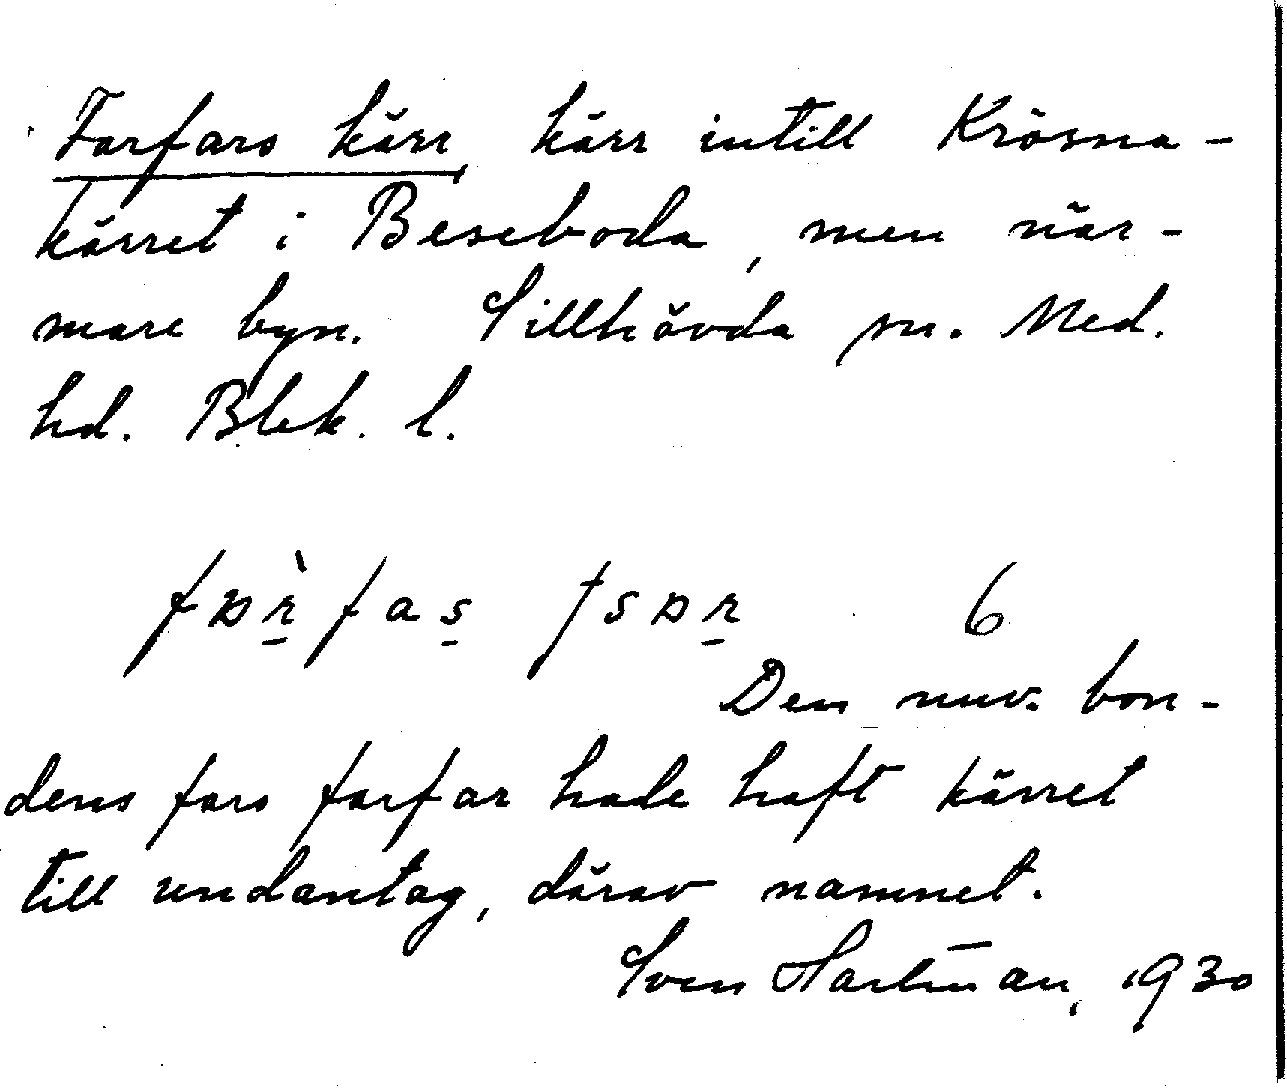 Farfars kärr, kärr intill Krösna-
kärret i Beseboda, men när-
mare byn. Sillhövda sn. Med.
hd. Blek. l.
6
Den nuv. bon-
dens fars farfar hade haft kärret
till undantag, därav namnet.
Sven Hartman, 1930